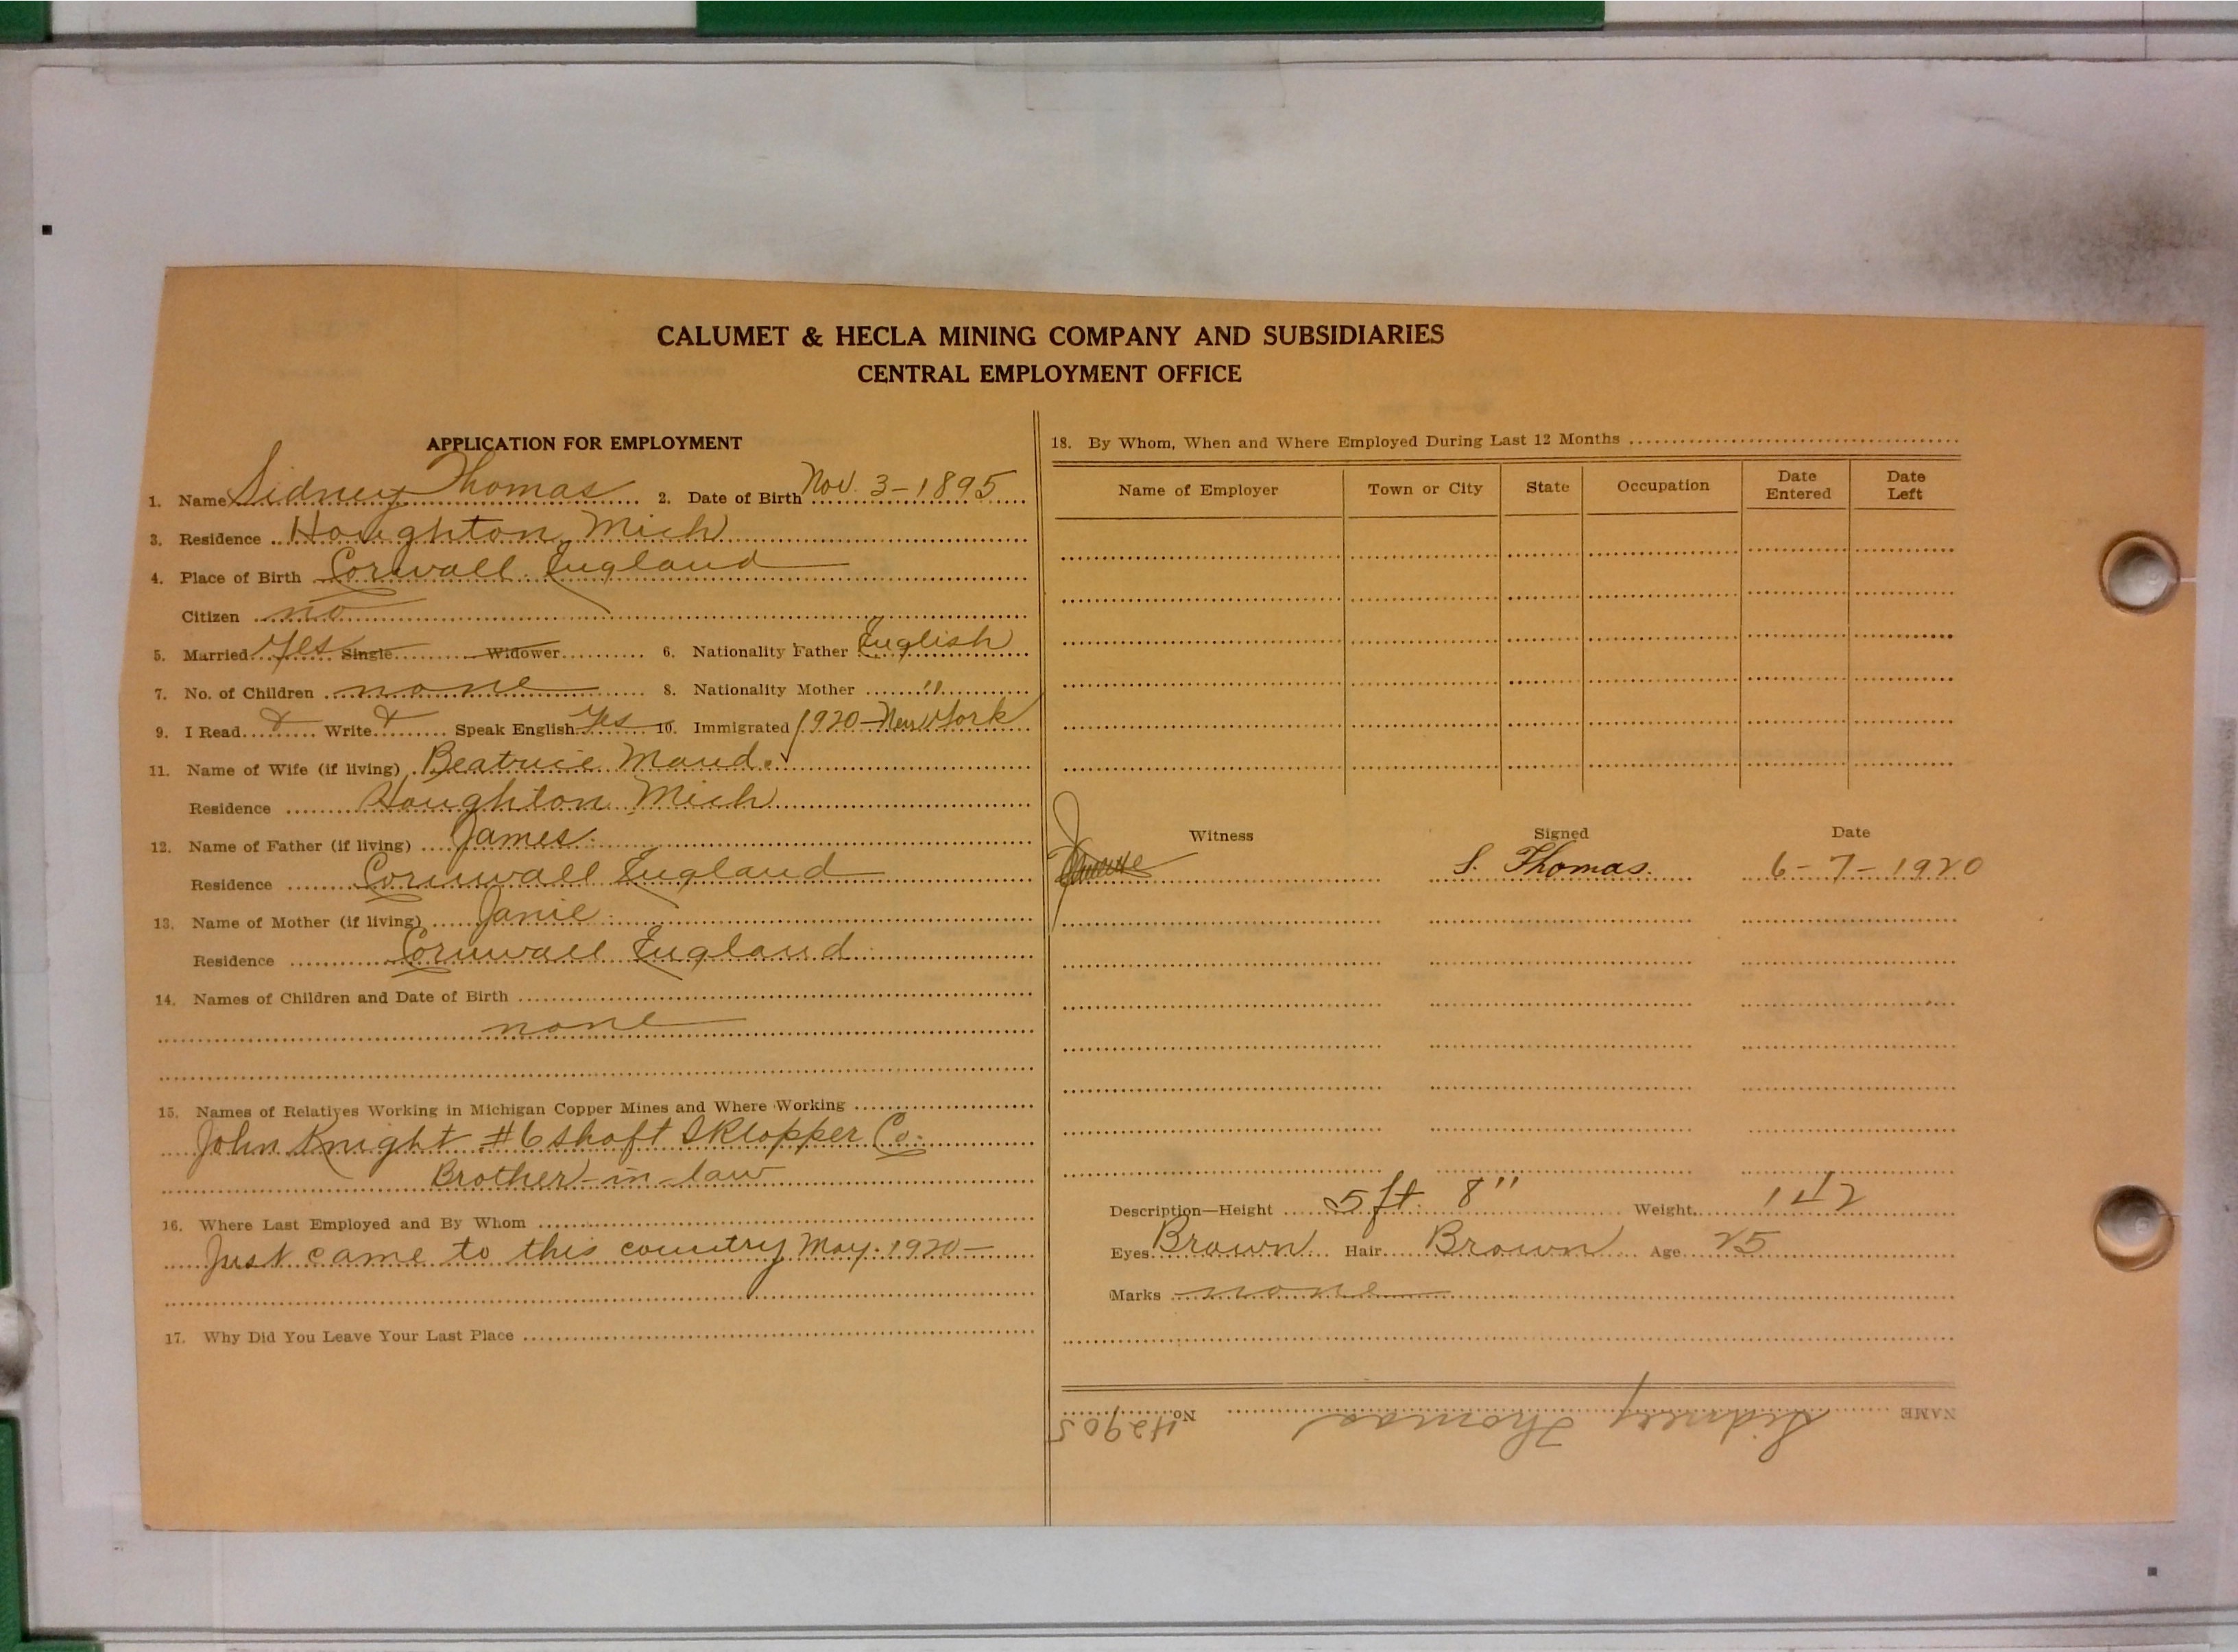 CALUMET & HECLA MINING COMPANY AND SUBSIDIARIES
CENTRAL EMPLOYMENT OFFICE
APPLICATION FOR EMPLOYMENT
1. Name Sidney Thomas 2. Date of Birth Nov. 3-1895
3. Residence Houghton Mich
4. Place of Birth Corwall. England
Citizen no
5. Married Yes Single Widower 6. Nationality Father English
7. No. of Children none 8. Nationality Mother "
9. I Read Write Speak English Yes 10. Immigrated 1920-New York
11. Name of Wife (if living) Beatrice Maud.
Residence Houghton Mich
12. Name of Father (if living) James.
Residence Cornwall England
13. Name of Mother (if living) Janie
Residence Cornwall England.
14. Names of Children and Date of Birth
none
15. Names of Relatives Working in Michigan Copper Mines and Where Working
John Knight #6 shaft Co.
Brother-in-law
16. Where Last Employed and By Whom
Just came to this country May. 1920-
17. Why Did You Leave Your Last Place
18. By Whom, When and Where Employed During Last 12 Months
Name of Employer Town or City State Occupation Date Entered Date Left
Witness Signed Date
S. Thomas. 6-7-1920
Description—Height 5 ft. 8" Weight 142
Eyes Brown Hair Brown Age 25
Marks none
NAME Sidney Thomas No. H2905